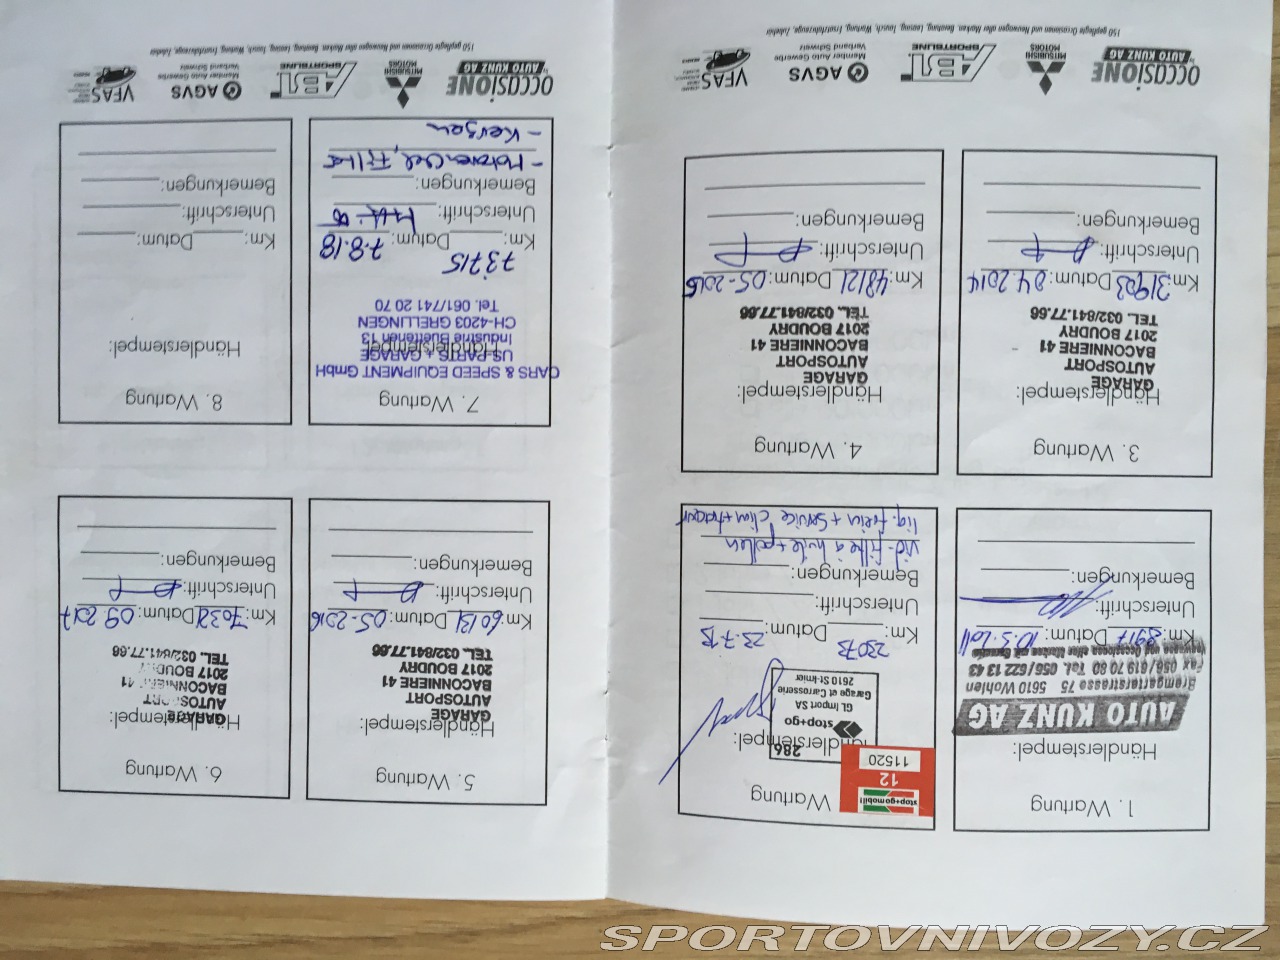 1. Wartung
Händlerstempel:
AUTO KUNZ AG
Bremgartenstrasse 75 5610 Wohlen
Fax 056/619 70 80 Tel. 056/622 13 43
Km: 8917 Datum: 10.5.2011
Unterschrift:
Bemerkungen:
Wartung
stop+gomobil!
12
11520
Händlerstempel:
286
stop+go
GL Import SA
Garage et Carrosserie
2610 St-Imier
Km: 23073 Datum: 23.7.13
Unterschrift:
Bemerkungen:
vid- filtre à huile + pollen
liq. frein + Service
3. Wartung
Händlerstempel:
GARAGE
AUTOSPORT
BACONNIERE 41
2017 BOUDRY
TÉL. 032/841.77.66
Km: 31903 Datum: 04.2014
Unterschrift:
Bemerkungen:
4. Wartung
Händlerstempel:
GARAGE
AUTOSPORT
BACONNIERE 41
2017 BOUDRY
TÉL. 032/841.77.66
Km: 48121 Datum: 05-2015
Unterschrift:
Bemerkungen:
OCCASIONE
by AUTO KUNZ AG
MITSUBISHI
MOTORS
ABT
SPORTSLINE
AGVS
Member Auto Gewerbe
Verband Schweiz
VFAS
150 gepflegte Occasionen und Neuwagen aller Marken, Beratung, Leasing, Tausch, Wartung, Ersatzfahrzeuge, Zubehör
5. Wartung
Händlerstempel:
GARAGE
AUTOSPORT
BACONNIERE 41
2017 BOUDRY
TÉL. 032/841.77.66
Km: 60131 Datum: 05-2016
Unterschrift:
Bemerkungen:
6. Wartung
Händlerstempel:
GARAGE
AUTOSPORT
BACONNIERE 41
2017 BOUDRY
TÉL. 032/841.77.66
Km: Datum: 09.2017
Unterschrift:
Bemerkungen:
7. Wartung
Händlerstempel:
CARS & SPEED EQUIPMENT GmbH
US-PARTS + GARAGE
Industrie Buettenen 13
CH-4203 GRELLINGEN
Tel. 061/741 20 70
Km: 73715 Datum: 7.8.18
Unterschrift:
Bemerkungen:
- Motorenoel, Filter
- Kerzen
8. Wartung
Händlerstempel:
Km: Datum:
Unterschrift:
Bemerkungen:
OCCASIONE
by AUTO KUNZ AG
MITSUBISHI
MOTORS
ABT
SPORTSLINE
AGVS
Member Auto Gewerbe
Verband Schweiz
VFAS
150 gepflegte Occasionen und Neuwagen aller Marken, Beratung, Leasing, Tausch, Wartung, Ersatzfahrzeuge, Zubehör
SPORTOVNIVOZY.CZ